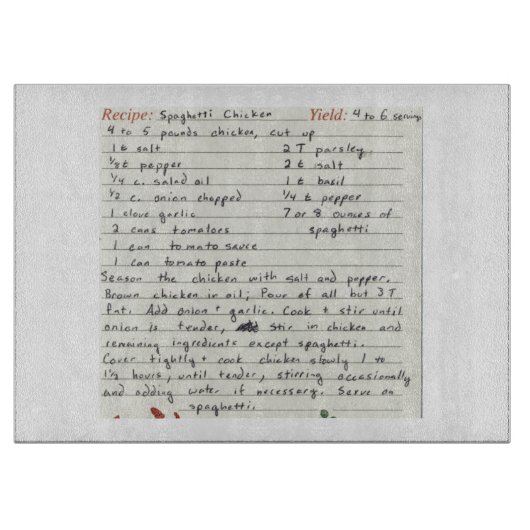 Recipe: Spaghetti Chicken Yield: 4 to 6 servings
4 to 5 pounds chicken, cut up
1 t salt 2 T parsley
1/8 t pepper 2 t salt
1/4 c. salad oil 1 t basil
1/2 c. onion chopped 1/4 t pepper
1 clove garlic 7 or 8 ounces of
2 cans tomatoes spaghetti
1 can tomato sauce
1 can tomato paste
Season the chicken with salt and pepper.
Brown chicken in oil; Pour of all but 3 T
fat. Add onion + garlic. Cook + stir until
onion is tender, stir in chicken and
remaining ingredients except spaghetti.
Cover tightly + cook chicken slowly 1 to
1 1/2 hours, until tender, stirring occasionally
and adding water if necessary. Serve on
spaghetti.